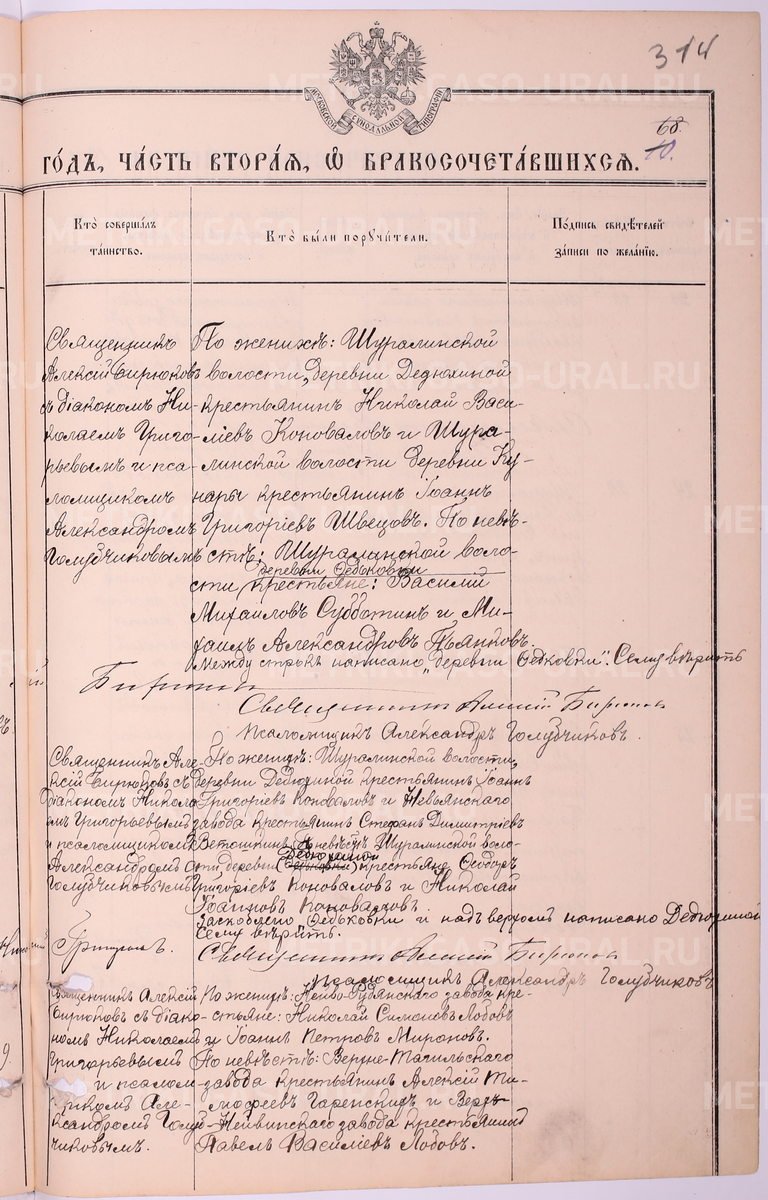 314
МОСКОВСКОЙ СѴНОДАЛЬНОЙ ТИПОГРАФІИ
68.
10.
ГО́ДЪ, ЧА́СТЬ ВТОРА́Ѧ, Ѡ҆ БРАКОСОЧЕТА́ВШИХСѦ.
Кто̀ соверша́лъ
та́инство.
Кто̀ бы́ли порꙋчи́тели.
По́дпись свидѣ́телей
за́писи по жела́нїю.
Священникъ
Алексій Бирюковъ
съ діакономъ Ни-
колаемъ Григо-
рьевымъ и пса-
ломщикомъ
Александромъ
Голубчиковымъ
По женихѣ: Шуралинской
волости, деревни Дедюхиной
крестьянинъ Николай Васи-
ліевъ Коноваловъ и Шура-
линской волости деревни Ку-
нары крестьянинъ Іоаннъ
Григоріевъ Швецовъ. По невѣ-
стѣ: Шуралинской воло-
деревни Федьковки
сти крестьяне: Василій
Михаиловъ Субботинъ и Ми-
хаилъ Александровъ Пьянковъ.
Между строкъ написано „деревни Федьковки". Сему вѣрить
Священникъ Алексій Бирюковъ
псаломщикъ Александръ Голубчиковъ.
Священникъ Але-
ксій Бирюковъ съ
діакономъ Никола-
емъ Григорьевымъ
и псаломщикомъ
Александромъ
Голубчиковымъ
По женихѣ: Шуралинской волости,
деревни Дедюхиной крестьянинъ Іоаннъ
Григоріевъ Коноваловъ и Невьянскаго
завода крестьянинъ Стефанъ Димитріевъ
Ветошкинъ. По невѣстѣ Шуралинской воло-
Дедюхиной
сти деревни (Федьковки) крестьяне Ѳеодоръ
Григоріевъ Коноваловъ и Николай
Іоанновъ Коноваловъ.
Заскоблено Федьковки и надъ верхомъ написано Дедюхиной
Сему вѣрить.
Священникъ Алексій Бирюковъ
псаломщикъ Александръ Голубчиковъ
Священникъ Алексій
Бирюковъ съ діако-
номъ Николаемъ
Григорьевымъ
и псалом-
щикомъ Але-
ксандромъ Голуб-
чиковымъ.
По женихѣ: Нейво-Рудянскаго завода кре-
стьяне: Николай Симоновъ Лобовъ
и Іоаннъ Петровъ Мироновъ.
По невѣстѣ: Верхне-Тагильскаго
завода крестьянинъ Алексій Ти-
мофеевъ Гаренскихъ и Верхъ-
Нейвинскаго завода крестьянинъ
Павелъ Василіевъ Лобовъ.